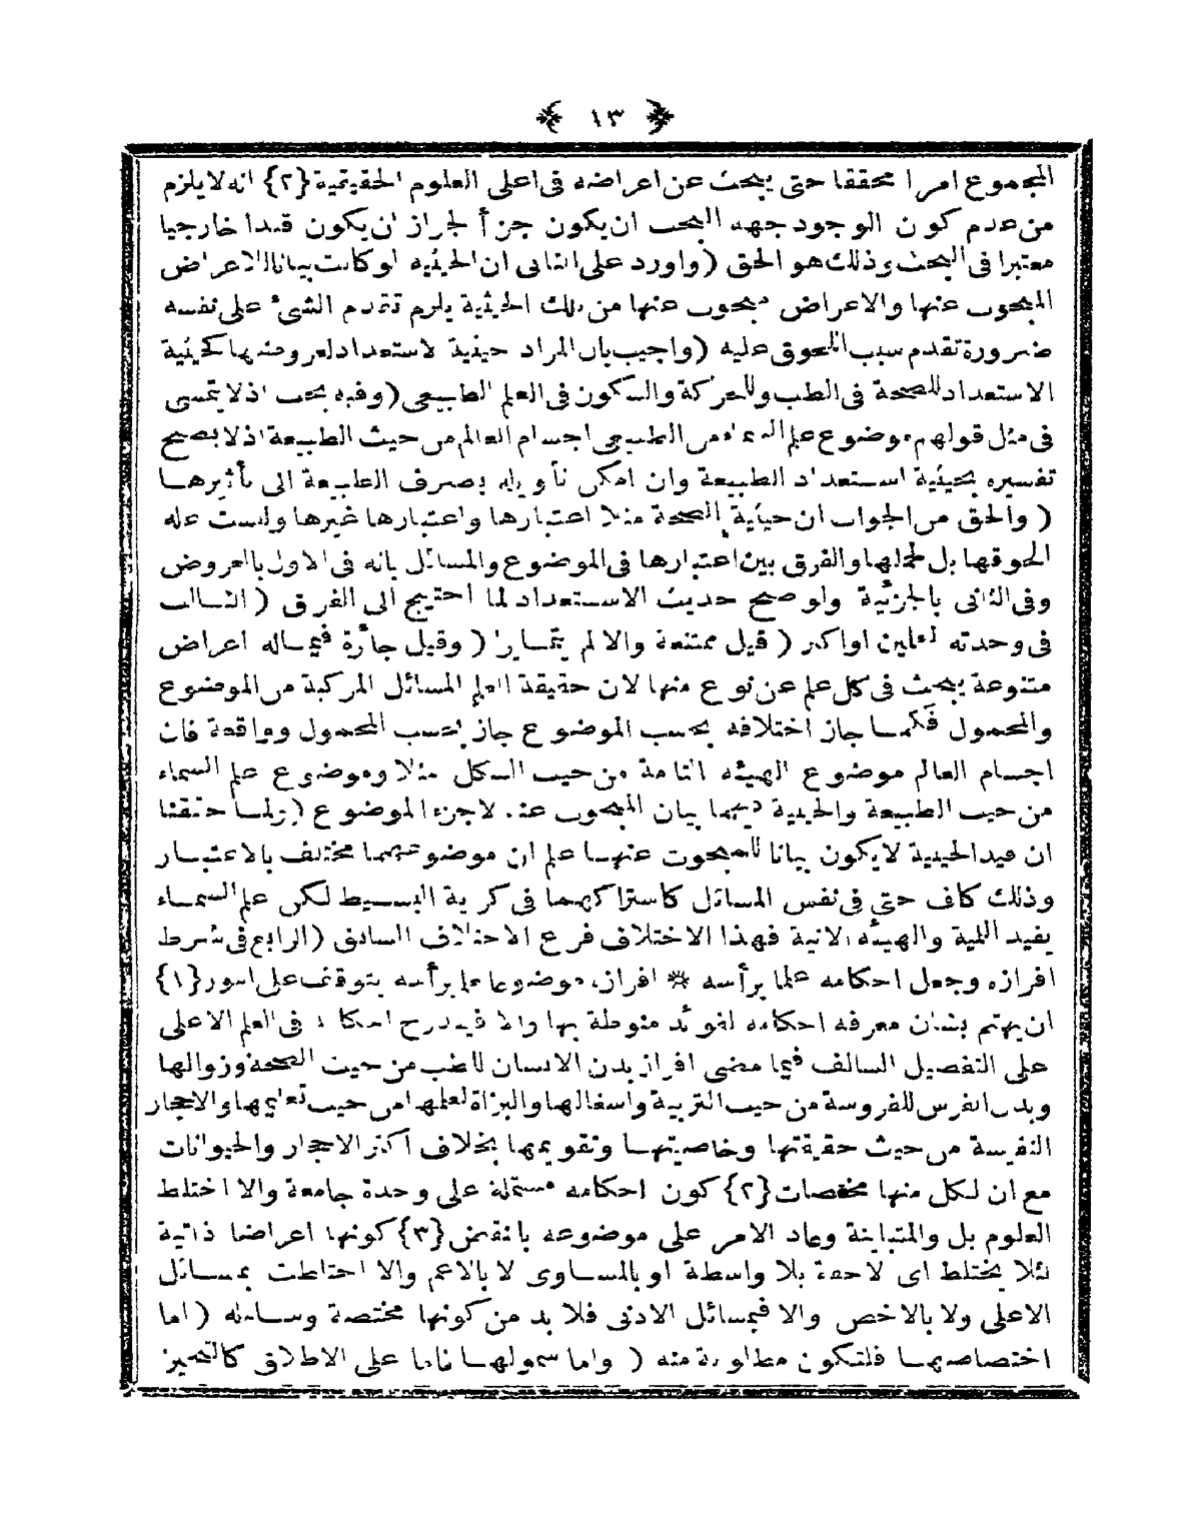 ﴿ ١٣ ﴾
المجموع امرا محققا حتى يبحث عن اعراضه فى اعلى العلوم الحقيقية {٢} انه لا يلزم
من عدم كون الوجود جهة البحث ان يكون جزأ لجواز ان يكون قيدا خارجيا
معتبرا فى البحث وذلك هو الحق (واورد على الثانى ان الحيثية لو كانت بيانا للاعراض
المبحوث عنها والاعراض مبحوث عنها من تلك الحيثية يلزم تقدم الشئ على نفسه
ضرورة تقدم سبب اللحوق عليه (واجيب بان المراد حيثية الاستعداد لعروضها كحيثية
الاستعداد للصحة فى الطب وللحركة والسكون فى العلم الطبيعى (وفيه بحث اذ لا يتمشى
فى مثل قولهم موضوع علم السماء من الطبيعى اجسام العالم من حيث الطبيعة اذ لا يصح
تفسيره بحيثية استعداد الطبيعة وان امكن تأويله بصرف الطبيعة الى تأثيرها
( والحق من الجواب ان حيثية الصحة مثلا اعتبارها واعتبارها غيرها وليست علة
لحوقها بل لحملها والفرق بين اعتبارها فى الموضوع والمسائل بانه فى الاول بالعروض
وفى الثانى بالجزئية ولو صح حديث الاستعداد لما احتيج الى الفرق ( الثالث
فى وحدته لعلمين او اكثر ( قيل ممتنعة والا لم يتمايزا ( وقيل جائزة فيما له اعراض
متنوعة يبحث فى كل علم عن نوع منها لان حقيقة العلم المسائل المركبة من الموضوع
والمحمول فكما جاز اختلافه بحسب الموضوع جاز بحسب المحمول وواقعة فان
اجسام العالم موضوع الهيئة التامة من حيث الشكل مثلا وموضوع علم السماء
من حيث الطبيعة والحيثية فيهما بيان المبحوث عنه لا جزء الموضوع ( ولما حققنا
ان قيد الحيثية لا يكون بيانا للمبحوث عنها علم ان موضوعيهما مختلف بالاعتبار
وذلك كاف حتى فى نفس المسائل كاشتراكهما فى كرية البسيط لكن علم السماء
يفيد اللمية والهيئة الانية فهذا الاختلاف فرع الاختلاف السابق (الرابع فى شرط
افرازه وجعل احكامه علما برأسه * افرازه موضوعا علما برأسه يتوقف على امور {١}
ان يهتم بشان معرفة احكامه لفوائد منوطة بها والا فيندرج احكامه فى العلم الاعلى
على التفصيل السالف فيما مضى افراز بدن الانسان للطب من حيث الصحة وزوالها
وبدن الفرس للفروسة من حيث التربية واشغالها والبزاة لعلمها من حيث تعليمها والاحجار
النفيسة من حيث حقيقتها وخاصيتها وتقويمها بخلاف اكثر الاحجار والحيوانات
مع ان لكل منها مخصصات {٢} كون احكامه مشتملة على وحدة جامعة والا اختلط
العلوم بل والمتباينة وعاد الامر على موضوعه بالنقض {٣} كونها اعراضا ذاتية
لئلا يختلط اى لاحقة بلا واسطة او بالمساوى لا بالاعم والا اختلطت بمسائل
الاعلى ولا بالاخص والا فبمسائل الادنى فلا بد من كونها مختصة وشاملة ( اما
اختصاصها فلتكون مطلوبة منه ( واما شمولها فاما على الاطلاق كالتحيز